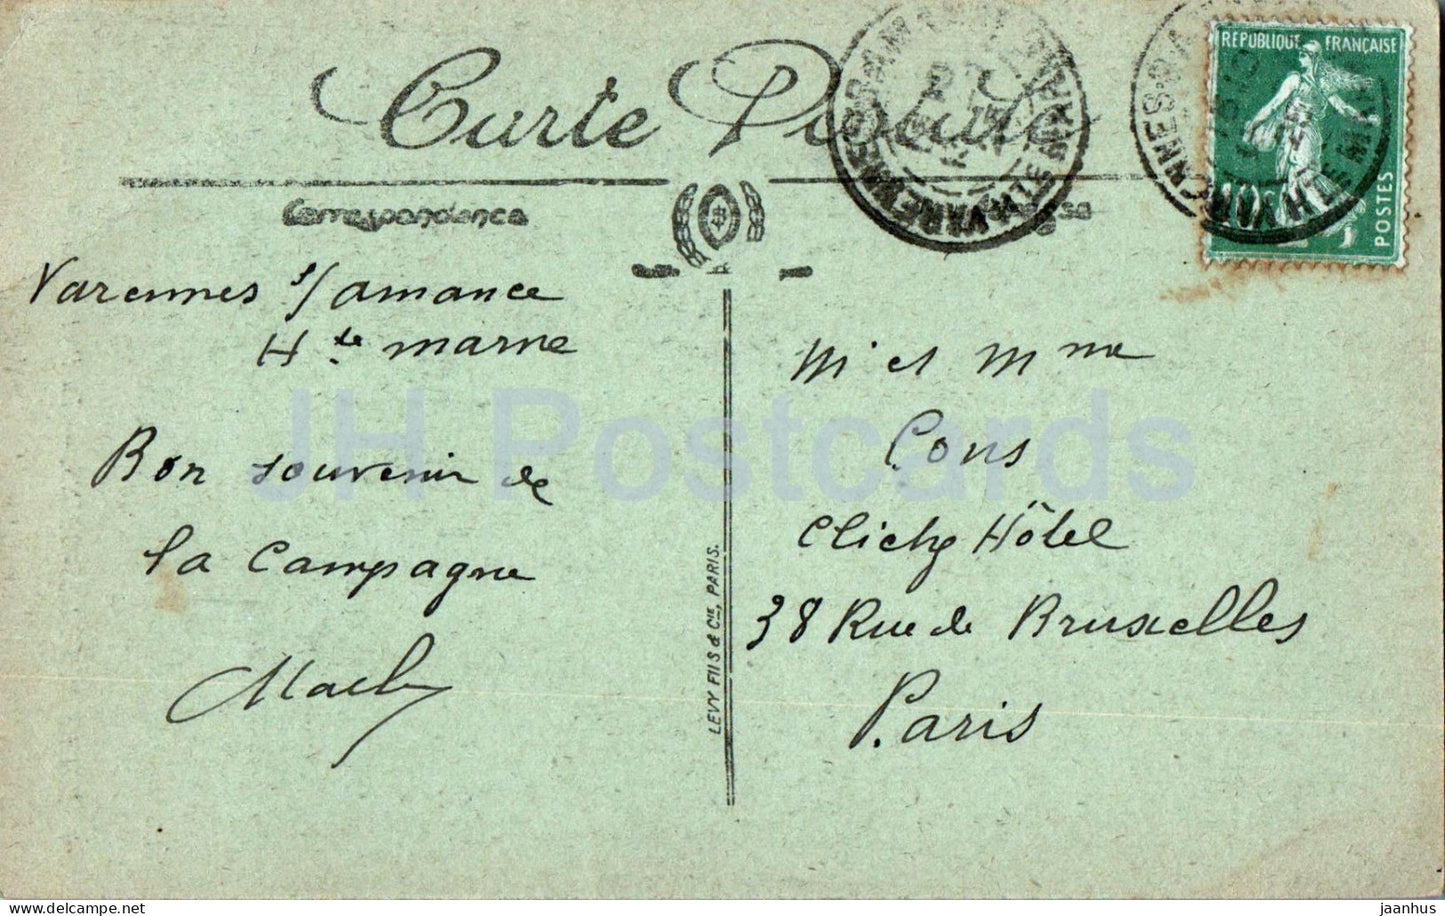 Carte Postale
RÉPUBLIQUE FRANÇAISE
10c
POSTES
Correspondance
Varennes s/ amance
Hte marne
Bon souvenir de
la Campagne
LEVY FILS & CIE, PARIS.
M et Mme
Cons
Clichy Hôtel
38 Rue de Bruxelles
Paris
JH Postcards
delcampe.net
jaanhus